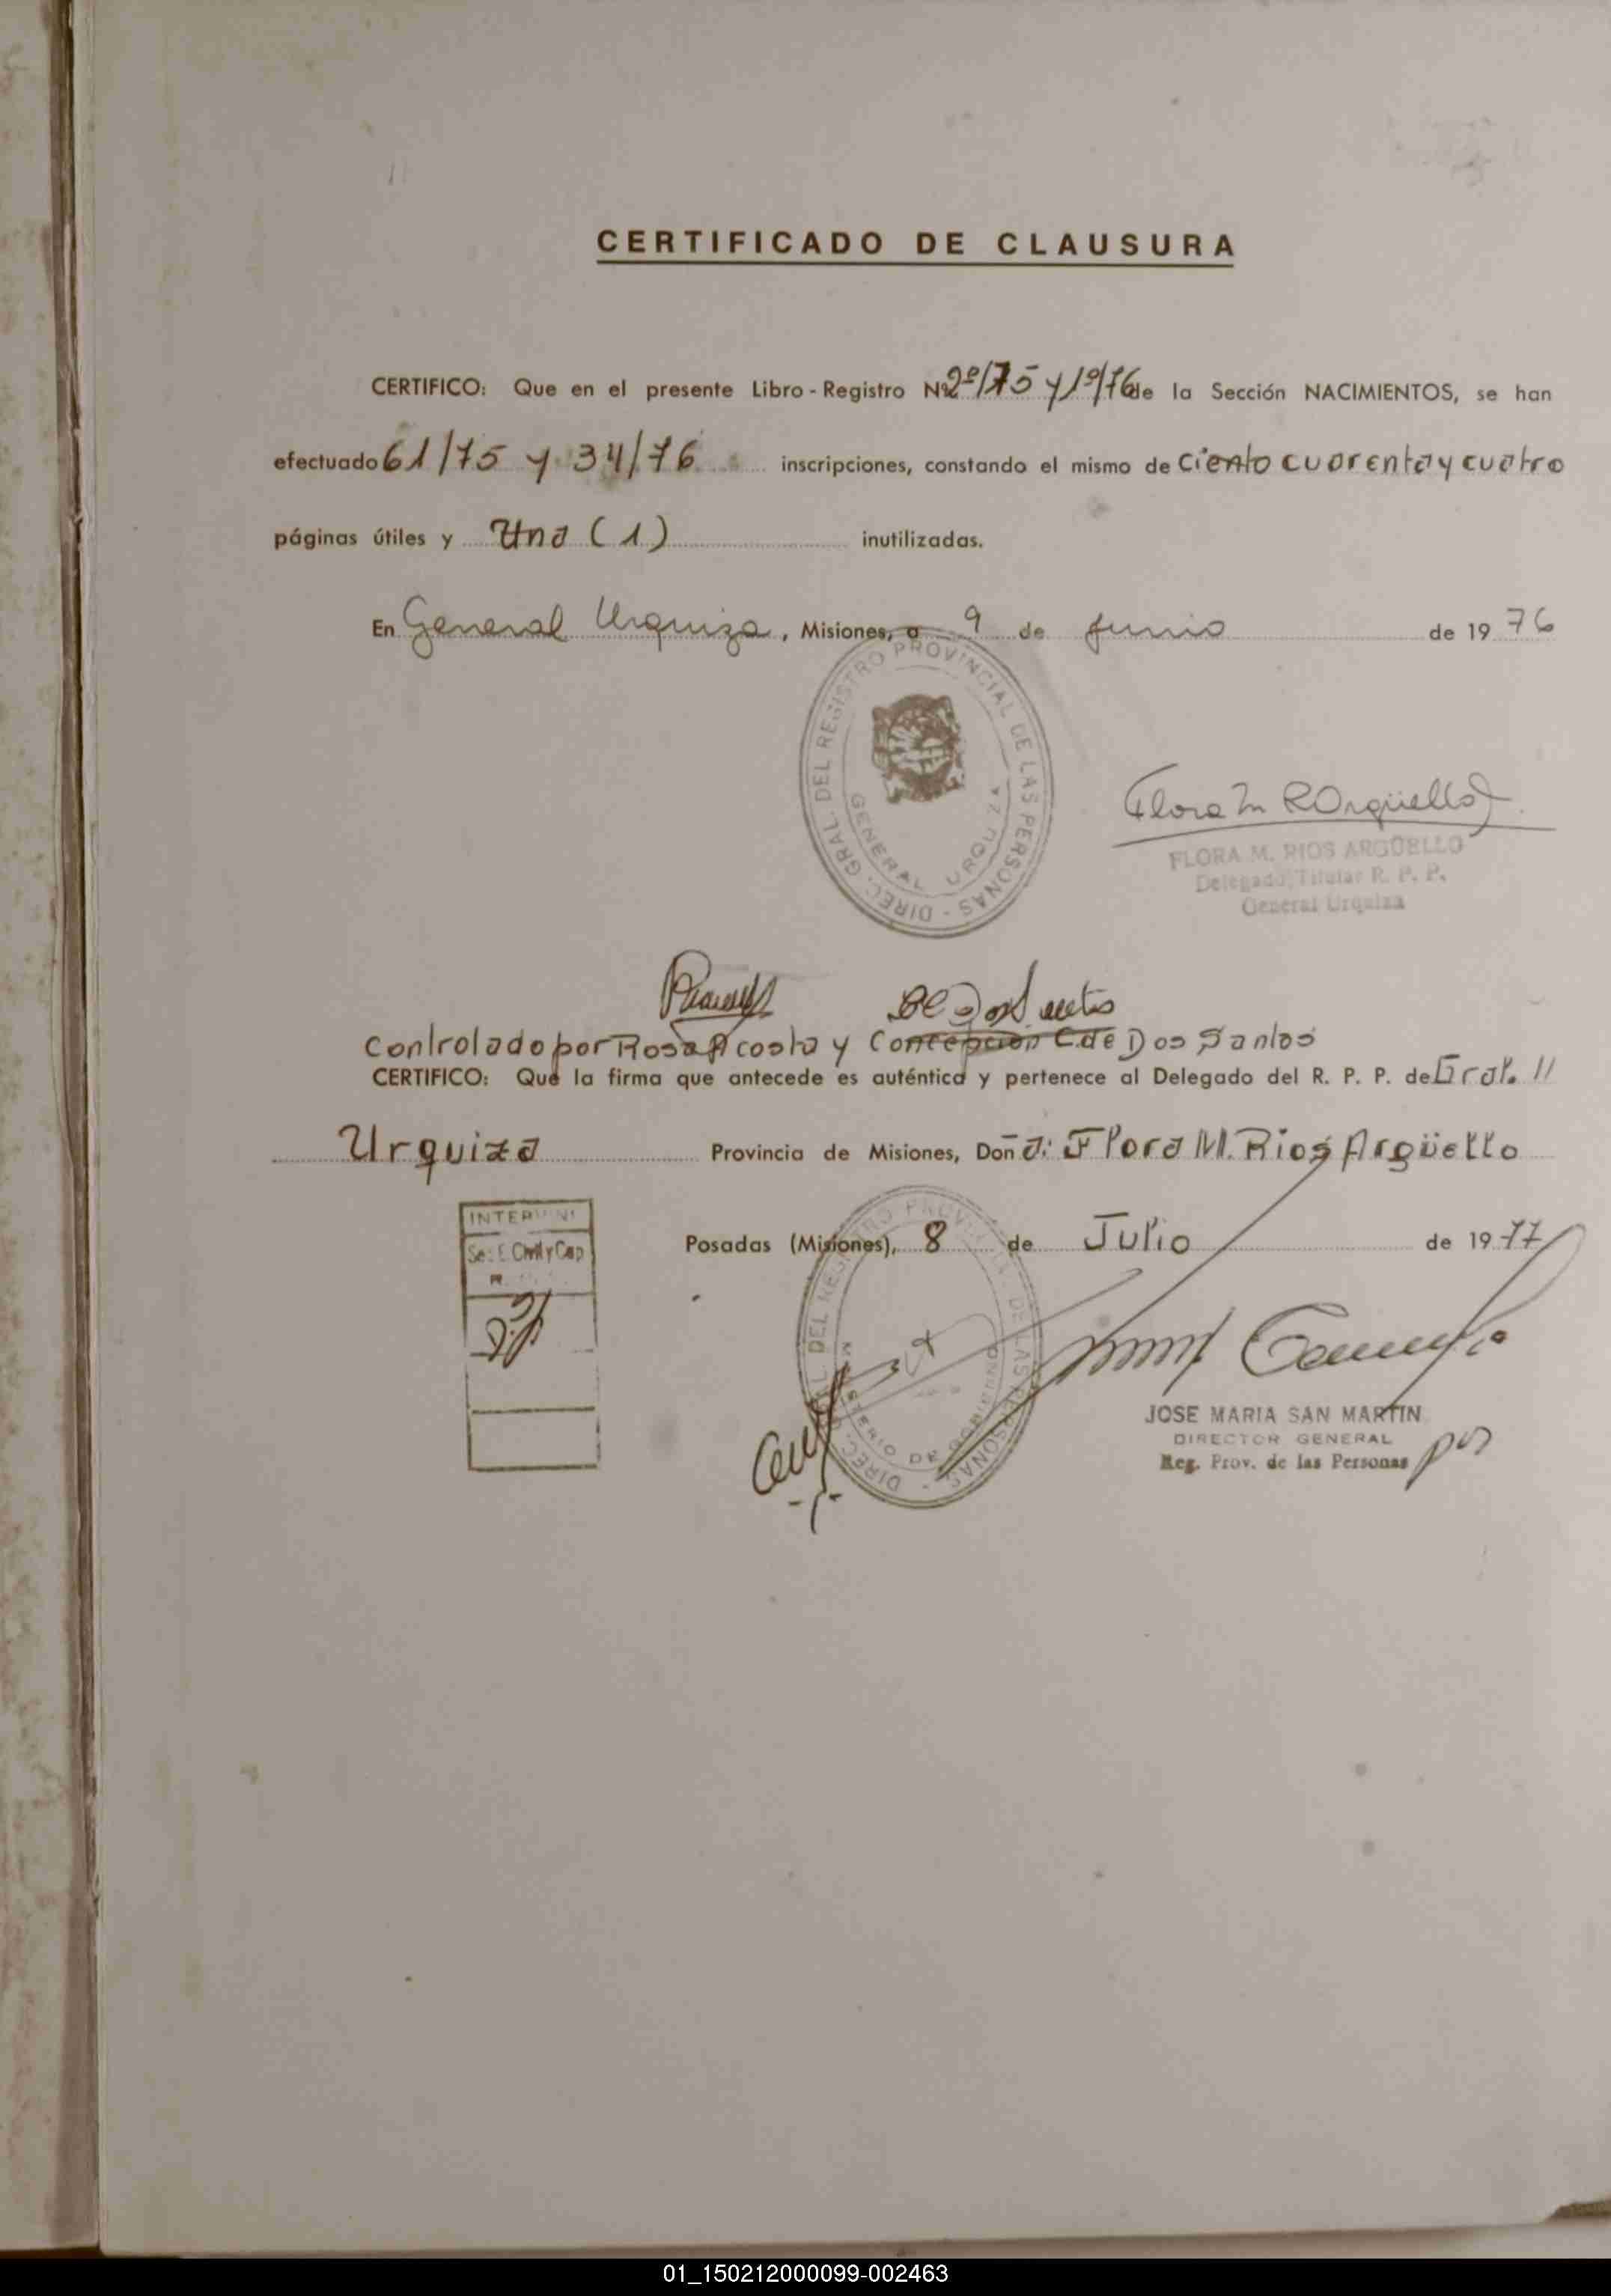 CERTIFICADO DE CLAUSURA
CERTIFICO: Que en el presente Libro-Registro Nº 2º/75 y 1º/76 de la Sección NACIMIENTOS, se han
efectuado 61/75 y 34/76 inscripciones, constando el mismo de Ciento cuarenta y cuatro
páginas útiles y Una (1) inutilizadas.
En General Urquiza, Misiones, a 9 de Junio de 1976
DIREC. GRAL. DEL REGISTRO PROVINCIAL DE LAS PERSONAS -
GENERAL URQUIZA
Flora M R Argüello
FLORA M. RIOS ARGÜELLO
Delegado Titular R. P. P.
General Urquiza
Controlado por Rosa Acosta y Concepción C. de Dos Santos
CERTIFICO: Que la firma que antecede es auténtica y pertenece al Delegado del R. P. P. de Gral. //
Urquiza Provincia de Misiones, Doña: Flora M. Rios Argüello
Posadas (Misiones), 8 de Julio de 1977
INTERVINI
Sec. E. Civil y Cap
DIREC. GRAL. DEL REGISTRO PROVINCIAL DE LAS PERSONAS -
MINISTERIO DE GOBIERNO
JOSE MARIA SAN MARTIN
DIRECTOR GENERAL
Reg. Prov. de las Personas
01_150212000099-002463